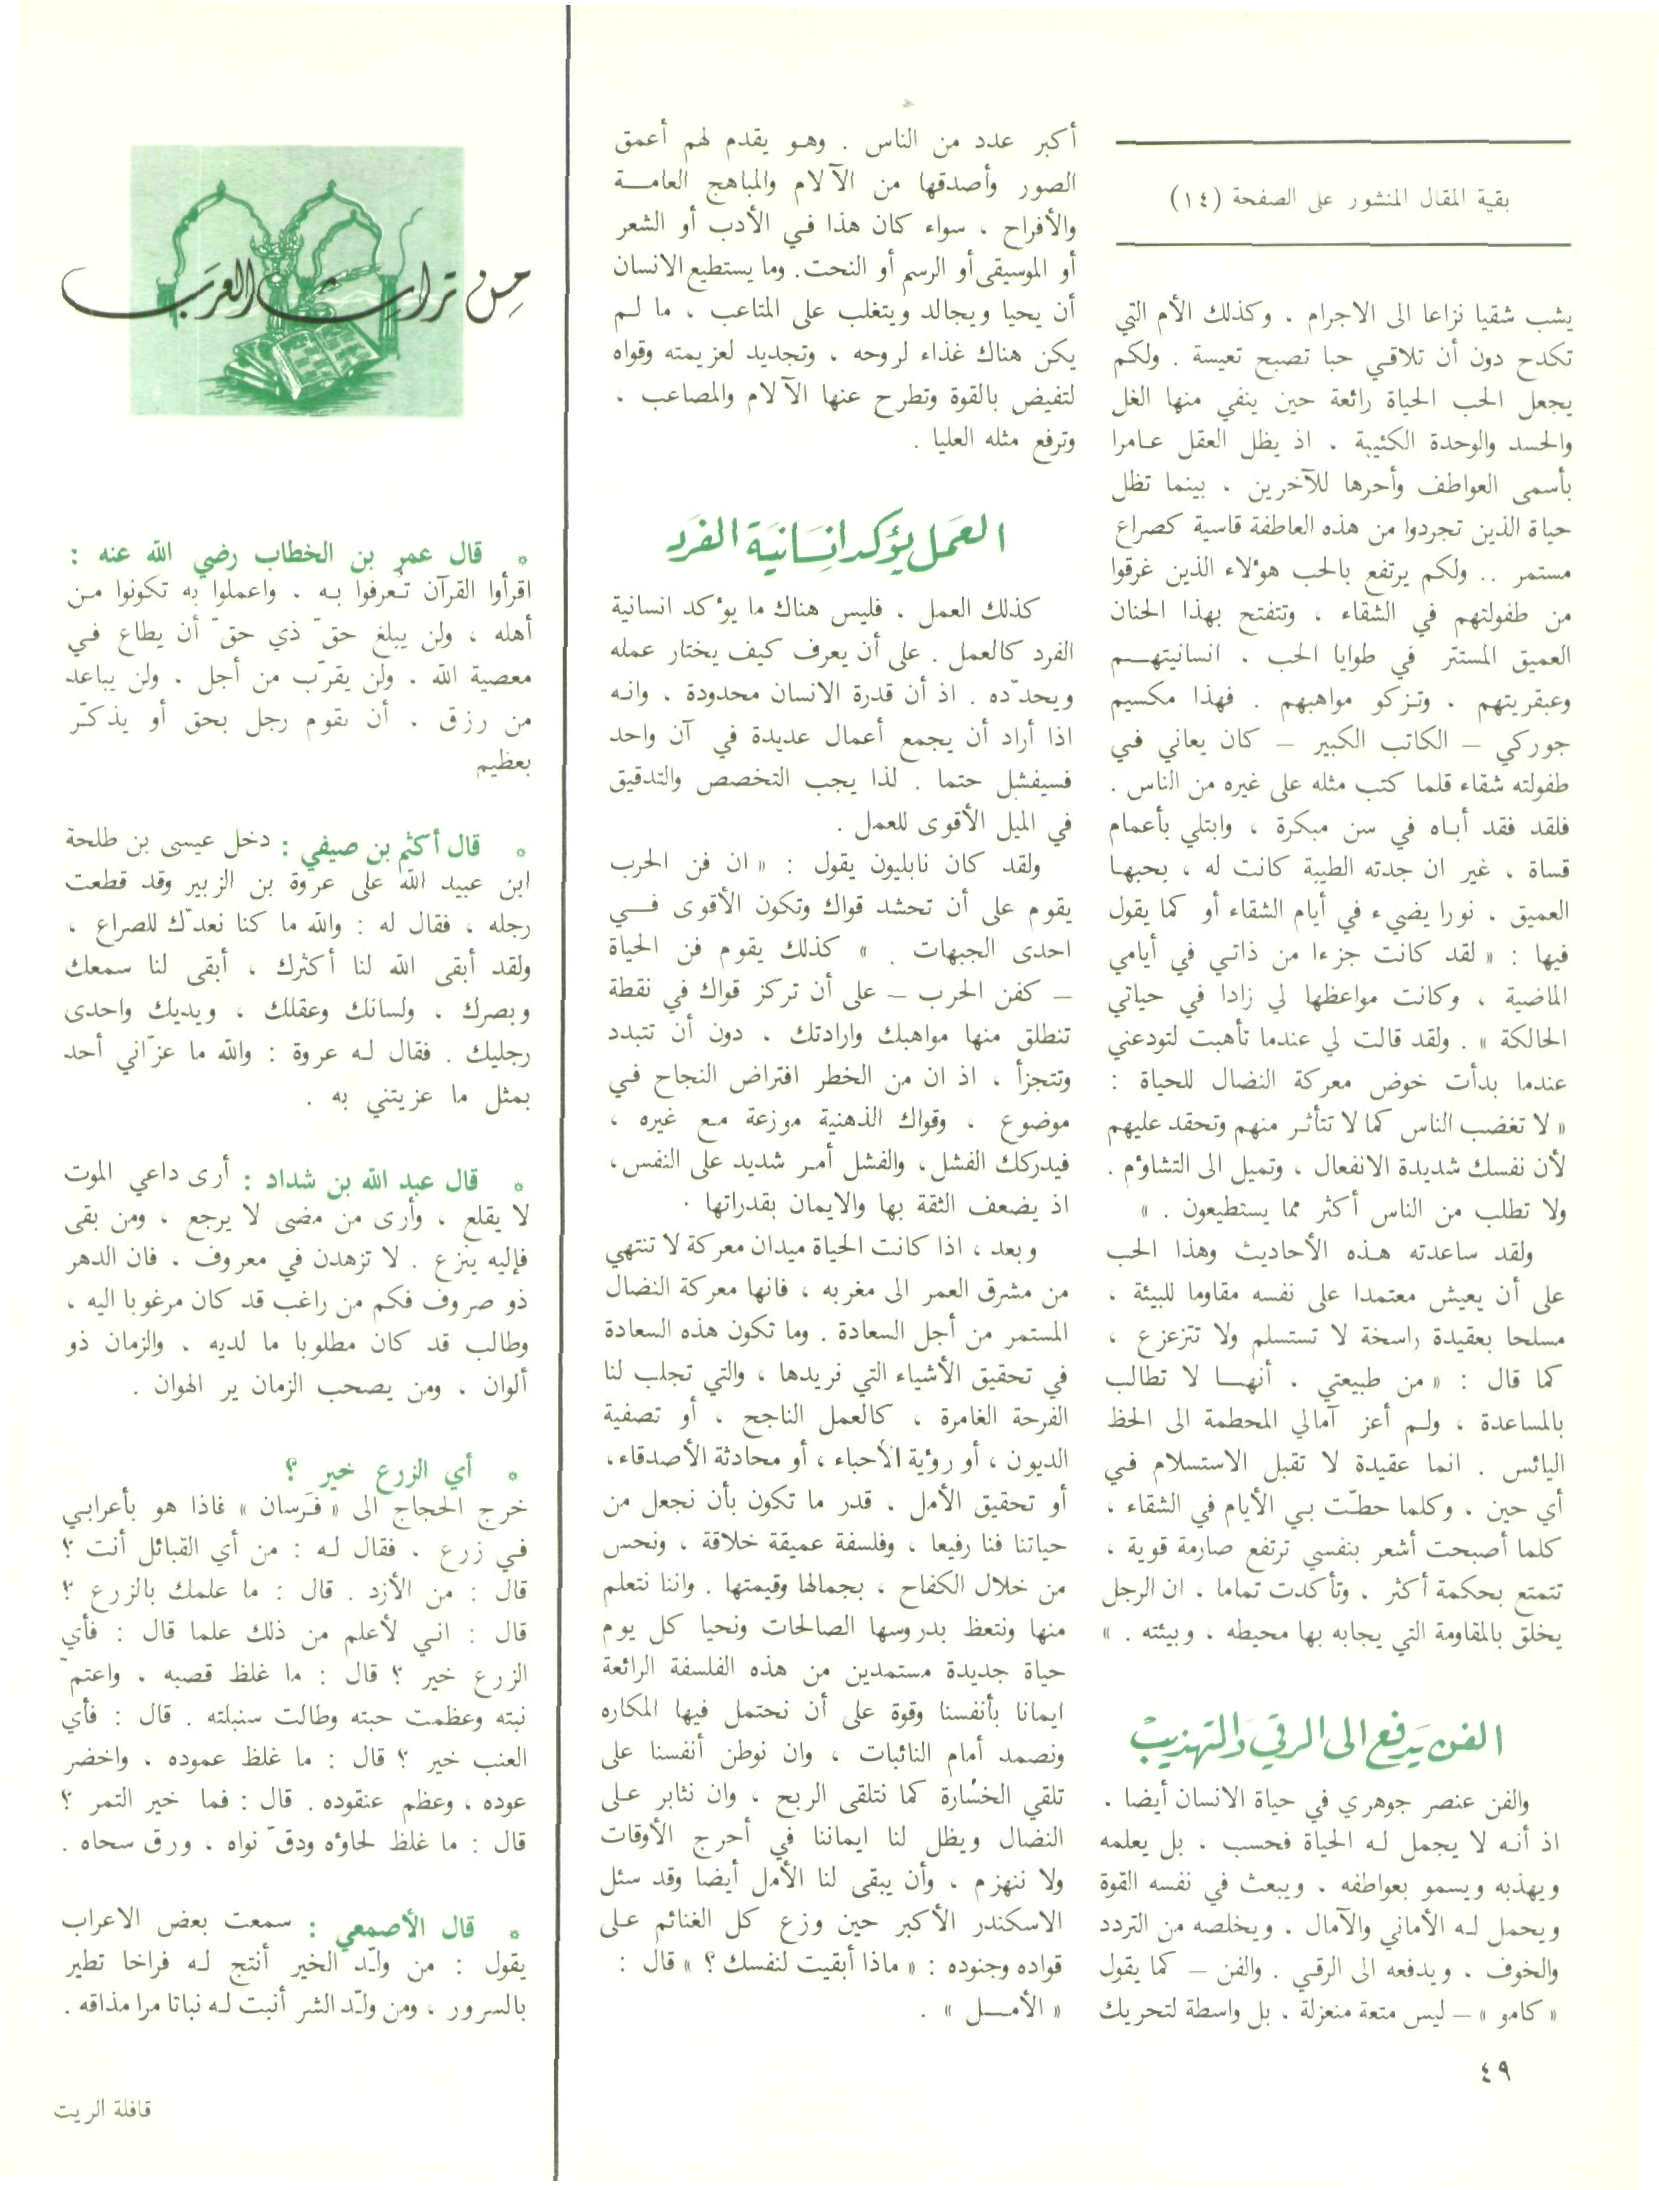 بقية المقال المنشور على الصفحة (١٤)
يشب شقيا نزاعا الى الاجرام ، وكذلك الأم التي
تكدح دون أن تلاقي حبا تصبح تعيسة . ولكم
يجعل الحب الحياة رائعة حين ينفي منها الغل
والحسد والوحدة الكئيبة . اذ يظل العقل عامرا
بأسمى العواطف وأحرها للآخرين ، بينما تظل
حياة الذين تجردوا من هذه العاطفة قاسية كصراع
مستمر .. ولكم يرتفع بالحب هؤلاء الذين غرقوا
من طفولتهم في الشقاء ، وتتفتح بهذا الحنان
العميق المستتر في طوايا الحب ، انسانيتهم
وعبقريتهم ، وتزكو مواهبهم . فهذا مكسيم
جوركي – الكاتب الكبير – كان يعاني في
طفولته شقاء قلما كتب مثله على غيره من الناس .
فلقد فقد أباه في سن مبكرة ، وابتلي بأعمام
قساة ، غير ان جدته الطيبة كانت له ، بحبها
العميق ، نورا يضيء في أيام الشقاء أو كما يقول
فيها : « لقد كانت جزءا من ذاتي في أيامي
الماضية ، وكانت مواعظها لي زادا في حياتي
الحالكة » . ولقد قالت لي عندما تأهبت لتودعني
عندما بدأت خوض معركة النضال للحياة :
« لا تغضب الناس كما لا تتأثر منهم وتحقد عليهم
لأن نفسك شديدة الانفعال ، وتميل الى التشاؤم .
ولا تطلب من الناس أكثر مما يستطيعون . »
ولقد ساعدته هذه الأحاديث وهذا الحب
على أن يعيش معتمدا على نفسه مقاوما للبيئة ،
مسلحا بعقيدة راسخة لا تستسلم ولا تتزعزع ،
كما قال : « من طبيعتي ، أنها لا تطالب
بالمساعدة ، ولم أعز آمالي المحطمة الى الحظ
اليائس . انما عقيدة لا تقبل الاستسلام في
أي حين ، وكلما حطّت بي الأيام في الشقاء ،
كلما أصبحت أشعر بنفسي ترتفع صارمة قوية ،
تتمتع بحكمة أكثر ، وتأكدت تماما ، ان الرجل
يخلق بالمقاومة التي يجابه بها محيطه ، وبيئته . »
الفن يدفع الى الرقي والتهذيب
والفن عنصر جوهري في حياة الانسان أيضا ،
اذ أنه لا يجمل له الحياة فحسب ، بل يعلمه
ويهذبه ويسمو بعواطفه ، ويبعث في نفسه القوة
ويحمل له الأماني والآمال ، ويخلصه من التردد
والخوف ، ويدفعه الى الرقي . والفن – كما يقول
« كامو » – ليس متعة منعزلة ، بل واسطة لتحريك
أكبر عدد من الناس . وهو يقدم لهم أعمق
الصور وأصدقها من الآلام والمباهج العامة
والأفراح ، سواء كان هذا في الأدب أو الشعر
أو الموسيقى أو الرسم أو النحت. وما يستطيع الانسان
أن يحيا ويجالد ويتغلب على المتاعب ، ما لم
يكن هناك غذاء لروحه ، وتجديد لعزيمته وقواه
لتفيض بالقوة وتطرح عنها الآلام والمصاعب ،
وترفع مثله العليا .
العمل يؤكد انسانية الفرد
كذلك العمل ، فليس هناك ما يؤكد انسانية
الفرد كالعمل . على أن يعرف كيف يختار عمله
ويحدّده . اذ أن قدرة الانسان محدودة ، وانه
اذا أراد أن يجمع أعمال عديدة في آن واحد
فسيفشل حتما . لذا يجب التخصص والتدقيق
في الميل الأقوى للعمل .
ولقد كان نابليون يقول : « ان فن الحرب
يقوم على أن تحشد قواك وتكون الأقوى في
احدى الجبهات . » كذلك يقوم فن الحياة
– كفن الحرب – على أن تركز قواك في نقطة
تنطلق منها مواهبك وارادتك ، دون أن تتبدد
وتتجزأ ، اذ ان من الخطر افتراض النجاح في
موضوع ، وقواك الذهنية موزعة مع غيره ،
فيدركك الفشل، والفشل أمر شديد على النفس،
اذ يضعف الثقة بها والايمان بقدراتها .
وبعد ، اذا كانت الحياة ميدان معركة لا تنتهي
من مشرق العمر الى مغربه ، فانها معركة النضال
المستمر من أجل السعادة . وما تكون هذه السعادة
في تحقيق الأشياء التي نريدها ، والتي تجلب لنا
الفرحة الغامرة ، كالعمل الناجح ، أو تصفية
الديون ، أو رؤية الأحباء ، أو محادثة الأصدقاء،
أو تحقيق الأمل ، قدر ما تكون بأن نجعل من
حياتنا فنا رفيعا ، وفلسفة عميقة خلاقة ، ونحس
من خلال الكفاح ، بجمالها وقيمتها . واننا نتعلم
منها ونتعظ بدروسها الصالحات ونحيا كل يوم
حياة جديدة مستمدين من هذه الفلسفة الرائعة
ايمانا بأنفسنا وقوة على أن نحتمل فيها المكاره
ونصمد أمام النائبات ، وان نوطن أنفسنا على
تلقي الخسارة كما نتلقى الربح ، وان نثابر على
النضال ويظل لنا ايماننا في أحرج الأوقات
ولا ننهزم ، وأن يبقى لنا الأمل أيضا وقد سئل
الاسكندر الأكبر حين وزع كل الغنائم على
قواده وجنوده : « ماذا أبقيت لنفسك ؟ » قال :
« الأمل » .
من تراث العرب
° قال عمر بن الخطاب رضي الله عنه :
اقرأوا القرآن تُعرفوا به ، واعملوا به تكونوا من
أهله ، ولن يبلغ حقّ ذي حقّ أن يطاع في
معصية الله ، ولن يقرّب من أجل ، ولن يباعد
من رزق ، أن يقوم رجل بحق أو يذكّر
بعظيم
° قال أكثم بن صيفي : دخل عيسى بن طلحة
ابن عبيد الله على عروة بن الزبير وقد قطعت
رجله ، فقال له : والله ما كنا نعدّك للصراع ،
ولقد أبقى الله لنا أكثرك ، أبقى لنا سمعك
وبصرك ، ولسانك وعقلك ، ويديك واحدى
رجليك . فقال له عروة : والله ما عزّاني أحد
بمثل ما عزيتني به .
° قال عبد الله بن شداد : أرى داعي الموت
لا يقلع ، وأرى من مضى لا يرجع ، ومن بقى
فإليه ينزع . لا تزهدن في معروف ، فان الدهر
ذو صروف فكم من راغب قد كان مرغوبا اليه ،
وطالب قد كان مطلوبا ما لديه ، والزمان ذو
ألوان ، ومن يصحب الزمان ير الهوان .
° أي الزرع خير ؟
خرج الحجاج الى « فَرَسان » فاذا هو بأعرابي
في زرع ، فقال له : من أي القبائل أنت ؟
قال : من الأزد . قال : ما علمك بالزرع ؟
قال : اني لأعلم من ذلك علما قال : فأي
الزرع خير ؟ قال : ما غلظ قصبه ، واعتمّ
نبته وعظمت حبته وطالت سنبلته . قال : فأي
العنب خير ؟ قال : ما غلظ عموده ، واخضر
عوده ، وعظم عنقوده. قال : فما خير التمر ؟
قال : ما غلظ لحاؤه ودقّ نواه ، ورق سحاه .
° قال الأصمعي : سمعت بعض الاعراب
يقول : من ولّد الخير أنتج له فراخا تطير
بالسرور ، ومن ولّد الشر أنبت له نباتا مرا مذاقه .
٤٩
قافلة الزيت